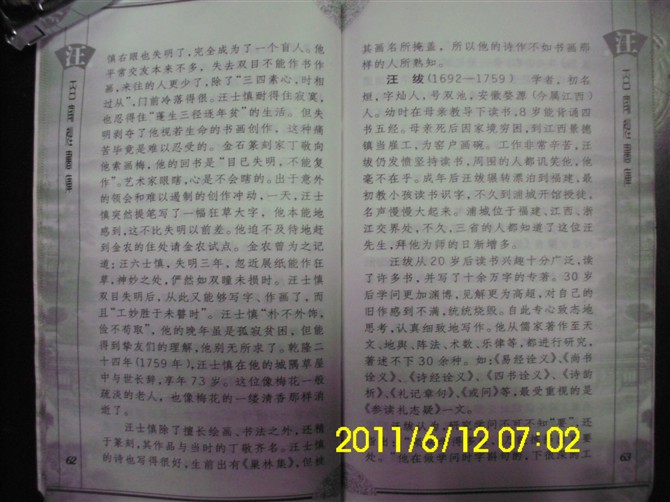 慎右眼也失明了,完全成为了一个盲人。他
平常交友本来不多,失去双目不能作书作
画,来往的人更少了,除了“三四素心,时相
过从”,门前冷落得很。汪士慎耐得住寂寞,
也忍得住“蓬生三径连年贫”的生活。但失
明剥夺了他视若生命的书画创作,这种痛
苦毕竟是难以忍受的。金石篆刻家丁敬向
他索画梅,他的回书是“目已失明,不能复
作”。艺术家眼瞎,心是不会瞎的。出于意外
的领会和难以遏制的创作冲动,一天,汪士
慎突然提笔写了一幅狂草大字,他本能地
感到,这不比失明以前差。他迫不及待地赶
到金农的住处请金农试点。金农曾为之记
道:汪六士慎,失明三年,忽近展纸能作狂
草,神妙之处,俨然如双瞳未损时。汪士慎
双目失明后,从此又能够写字、作画了,而
且“工妙胜于未瞽时”。汪士慎“朴不外饰,
俭不苟取”,他的晚年虽是孤寂贫困,但能
得到挚友们的理解,他别无所求了。乾隆二
十四年(1759年),汪士慎在他的城隅草屋
中与世长辞,享年73岁。这位像梅花一般
疏淡的老人,也像梅花的一缕清香那样消
逝了。
汪士慎除了擅长绘画、书法之外,还精
于篆刻,其作品与当时的丁敬齐名。汪士慎
的诗也写得很好,生前出有《巢林集》,但被
62
汪
其画名所掩盖,所以他的诗作不如书画那
样的人所熟知。
汪绂(1692—1759) 学者,初名
烜,字灿人,号双池,安徽婺源(今属江西)
人。幼时在母亲教导下读书,8岁能背诵四
书五经。母亲死后因家境穷困,到江西景德
镇当雇工,为窑户画碗。工作非常辛苦,汪
绂仍发愤坚持读书,周围的人都讥笑他,他
毫不在乎。成年后汪绂辗转漂泊到福建,最
初教小孩读书识字,不久到浦城开馆授徒,
名声慢慢大起来。浦城位于福建、江西、浙
江交界处,不久,三省的人都知道了这位汪
先生,拜他为师的日渐增多。
汪绂从20岁后读书兴趣十分广泛,读
了许多书,并写了十余万字的专著。30岁
后学问更加渊博,见解更为高超,对自己的
旧作感到不满,统统烧毁。自此专心致志地
思考,认真细致地写作。他从儒家著作至天
文、地舆、阵法、术数、乐律等,都进行研究,
著述不下30余种。如:《易经诠义》、《尚书
诠义》、《诗经诠义》、《四书诠义》、《诗韵
析》、《礼记章句》、《戊问》等,最受重视的是
《参读礼志疑》一文。
处。”他在做学问时字斟句酌,下很深的工
63
汪
2011/6/12 07:02